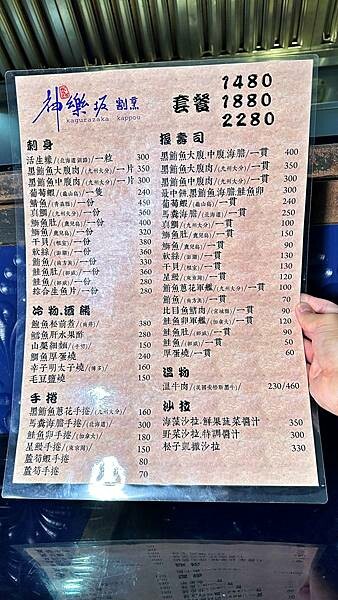 神樂坂 割烹
kagurazaka kappou
套餐
1480
1880
2280
刺身
活生蠔/(北海道釧路)/一粒 300
黑鮪魚大腹肉/(九州大分)/一片 350
黑鮪魚中腹肉/(九州大分)/一片 300
葡萄蝦/(龜山島)/一隻 240
鯖魚/(青森縣)/一份 450
真鯛/(九州大分)/一份 360
鰤魚肚/(鹿兒島)/一份 350
鰤魚/(鹿兒島)/一份 320
干貝/(根室)/一份 400
軟絲/(澎湖)/一份 330
鮪魚/(南方澳)/一份 330
鮭魚肚/(挪威)/一份 380
鮭魚/(挪威)/一份 280
綜合生魚片/一份
冷物.酒餚
鮑魚松前煮/(南非) 380
鱈魚肝水果醋 280
山藥細麵/(手切) 150
鯛魚厚蛋燒 240
辛子明太子燒/(博多) 160
毛豆鹽燒 150
手捲
黑鮪魚蔥花手捲/(九州大分) 160
馬糞海膽手捲/(北海道) 350
鮭魚卵手捲/(加拿大) 180
星鰻手捲/(東京灣) 150
蘆筍蝦手捲 80
蘆筍手捲 70
握壽司
黑鮪魚大腹.中腹.海膽/一貫 400
黑鮪魚大腹肉/(九州大分)/一貫 350
黑鮪魚中腹肉/(九州大分)/一貫 300
最中餅.黑鮪魚.海膽.鮭魚卵
葡萄蝦/(龜山島)/一貫 240
馬糞海膽/(北海道)/一貫 250
真鯛/(九州大分)/一貫 100
鰤魚肚/(鹿兒島)/一貫 90
軟絲/(澎湖)/一貫 90
干貝/(根室)/一貫 130
星鰻/(東京灣)/一貫 130
鮪魚蔥花軍艦/(九州大分)/一貫 100
鮪魚/(南方澳)/一貫 70
比目魚鰭肉/(宮城縣)/一貫 90
鮭魚卵軍艦/(加拿大)/一貫 120
鮭魚肚/(挪威)/一貫 90
鮭魚/(挪威)/一貫 50
厚蛋燒/一貫 60
溫物
溫牛肉/(美國安格斯黑牛) 230/460
沙拉
海藻沙拉.鮮果蔬菜醬汁 350
野菜沙拉.特調醬汁 300
松子凱撒沙拉 330